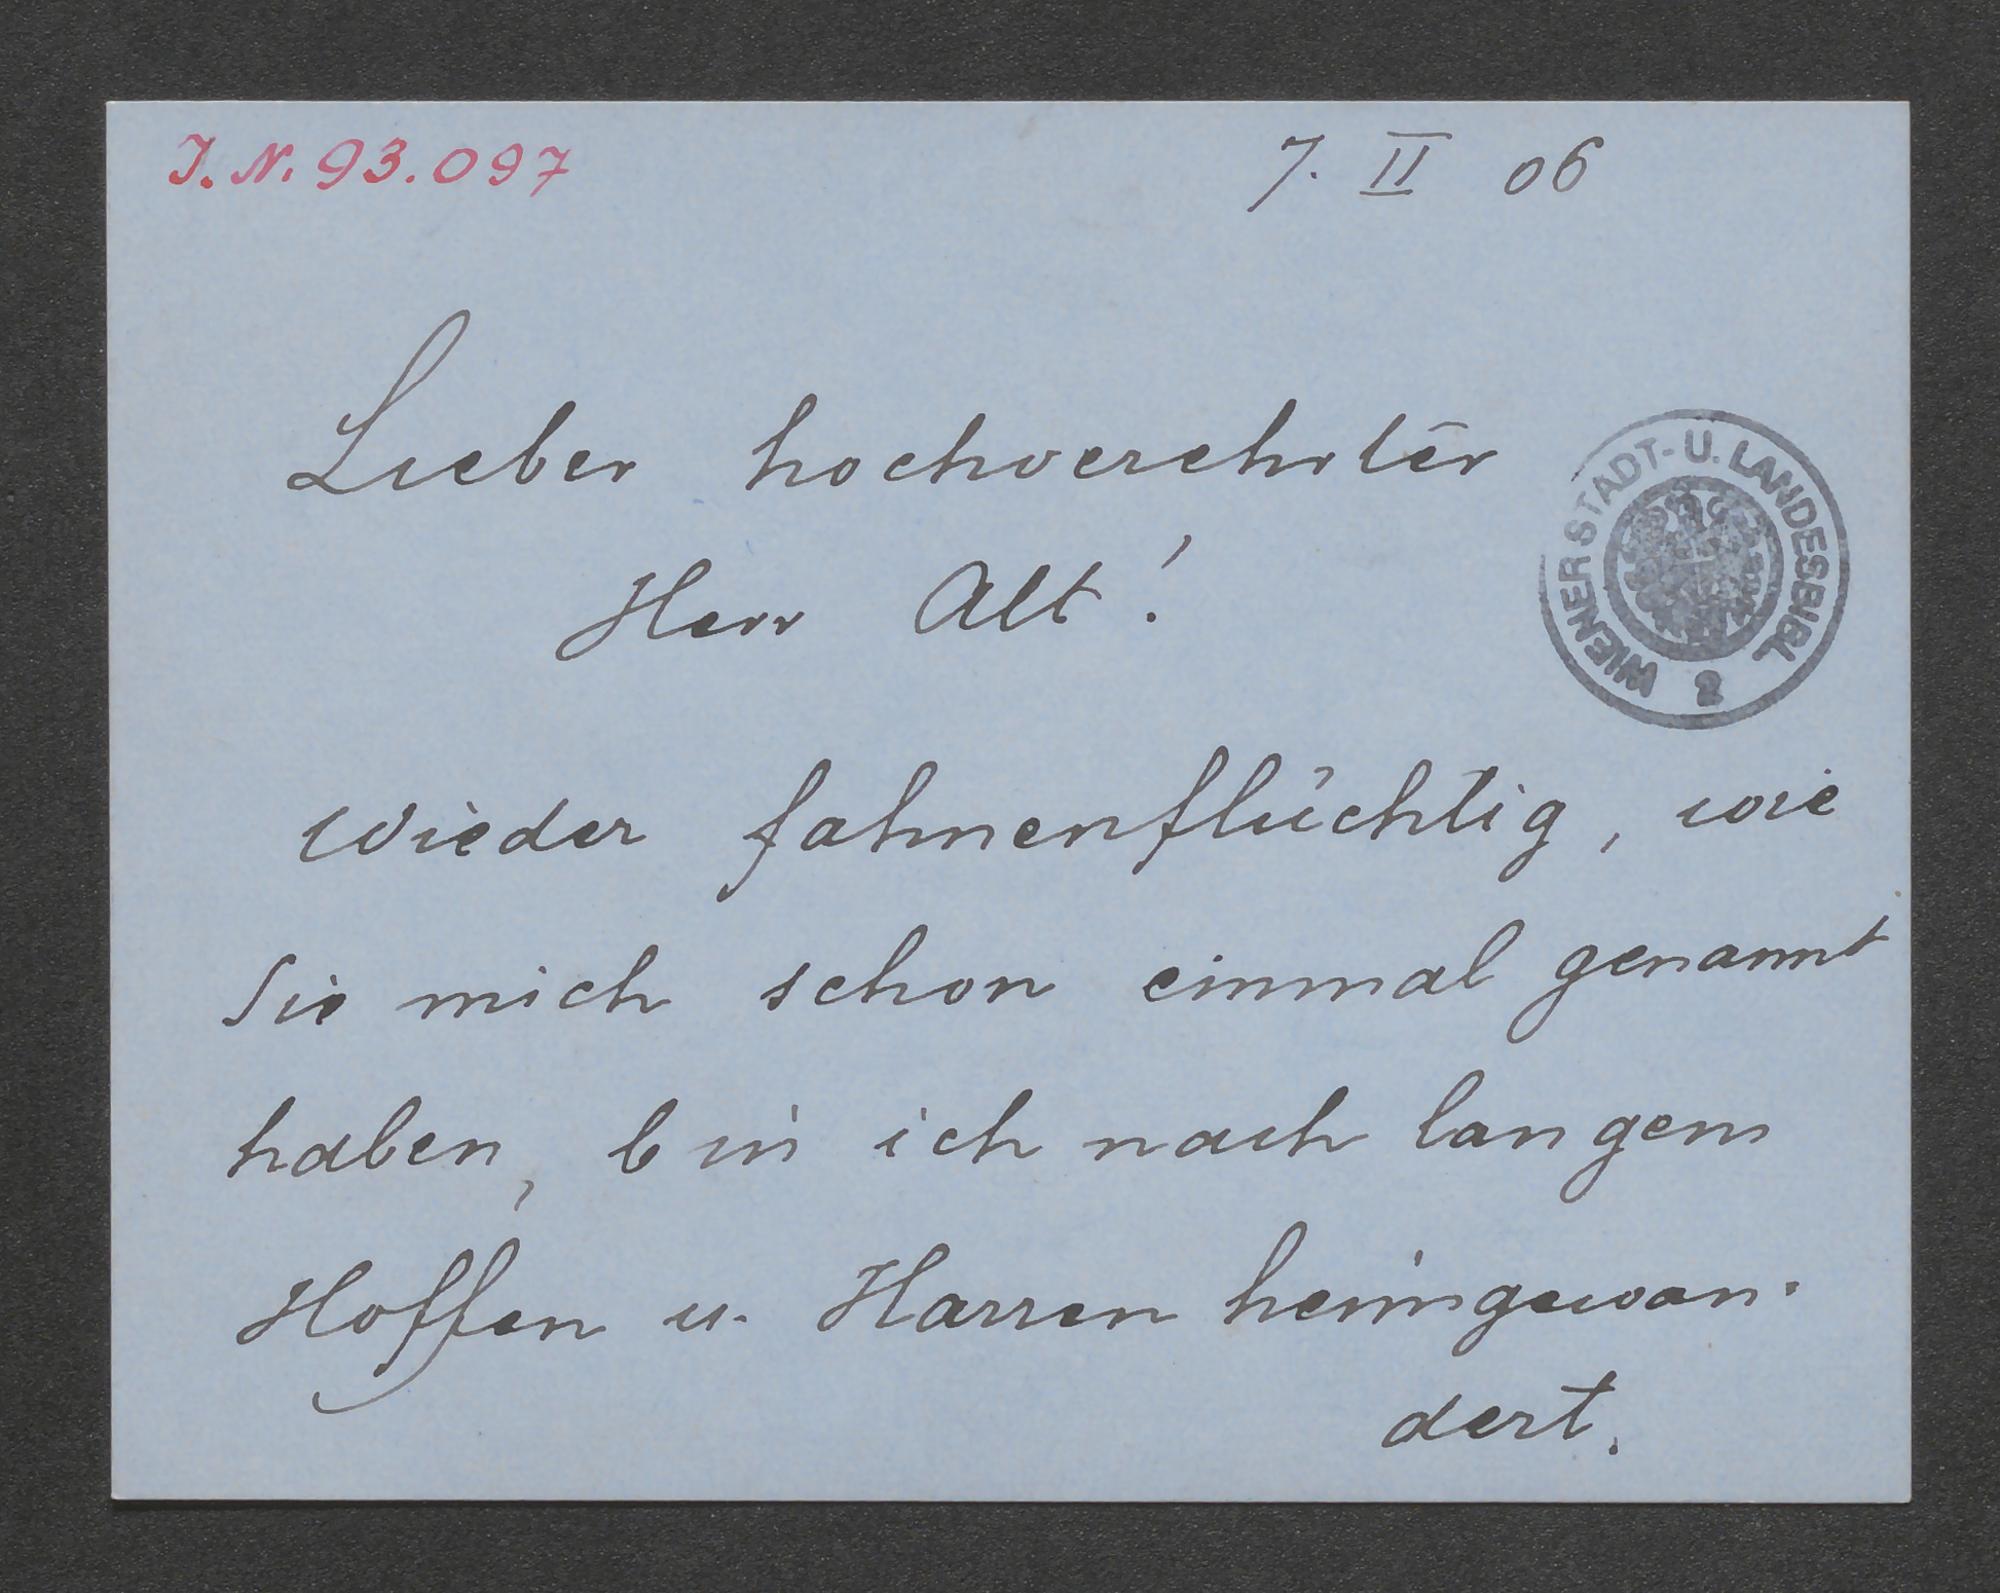 J. N. 93.097
7. II 06
Lieber hochverehrter
Herr Alt!
WIENER STADT- U. LANDESBIBL.
2
wieder fahnenflüchtig, wie
Sie mich schon einmal genannt
haben, bin ich nach langem
Hoffen u. Harren heimgewan-
dert.